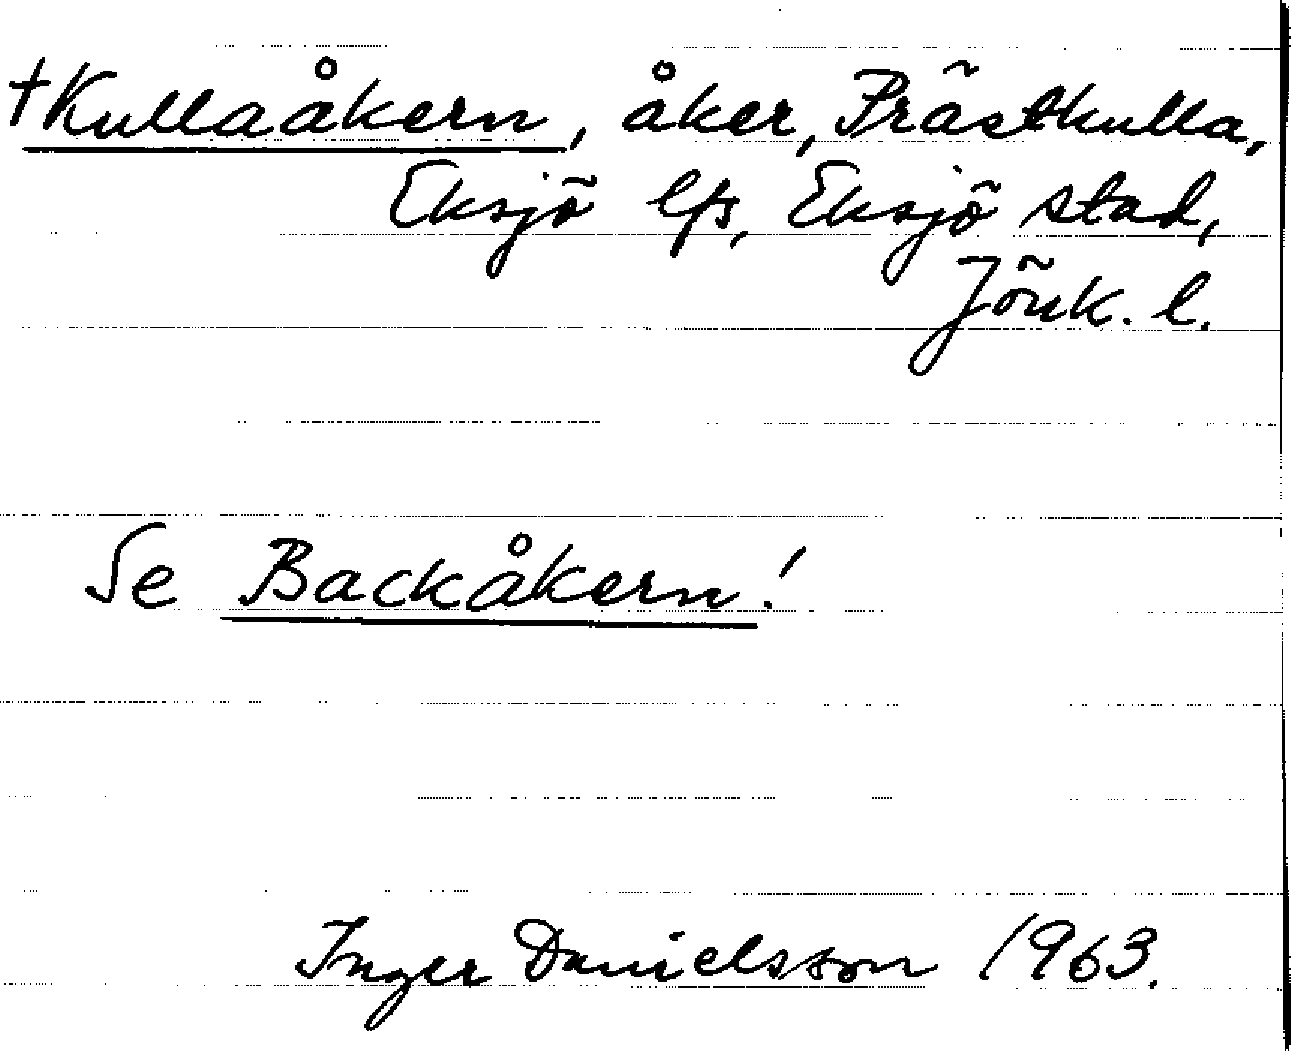 †Kullaåkern, åker, Prästkulla,
Eksjö lfs, Eksjö stad,
Jönk. l.
Se Backåkern!
Inger Danielsson 1963.